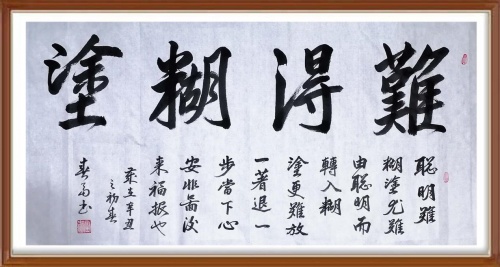 難得糊塗
聰明難
糊塗尤難
由聰明而
轉入糊
塗更難放
一著退一
步當下心
安非圖後
來福報也
歲在辛丑
之初春